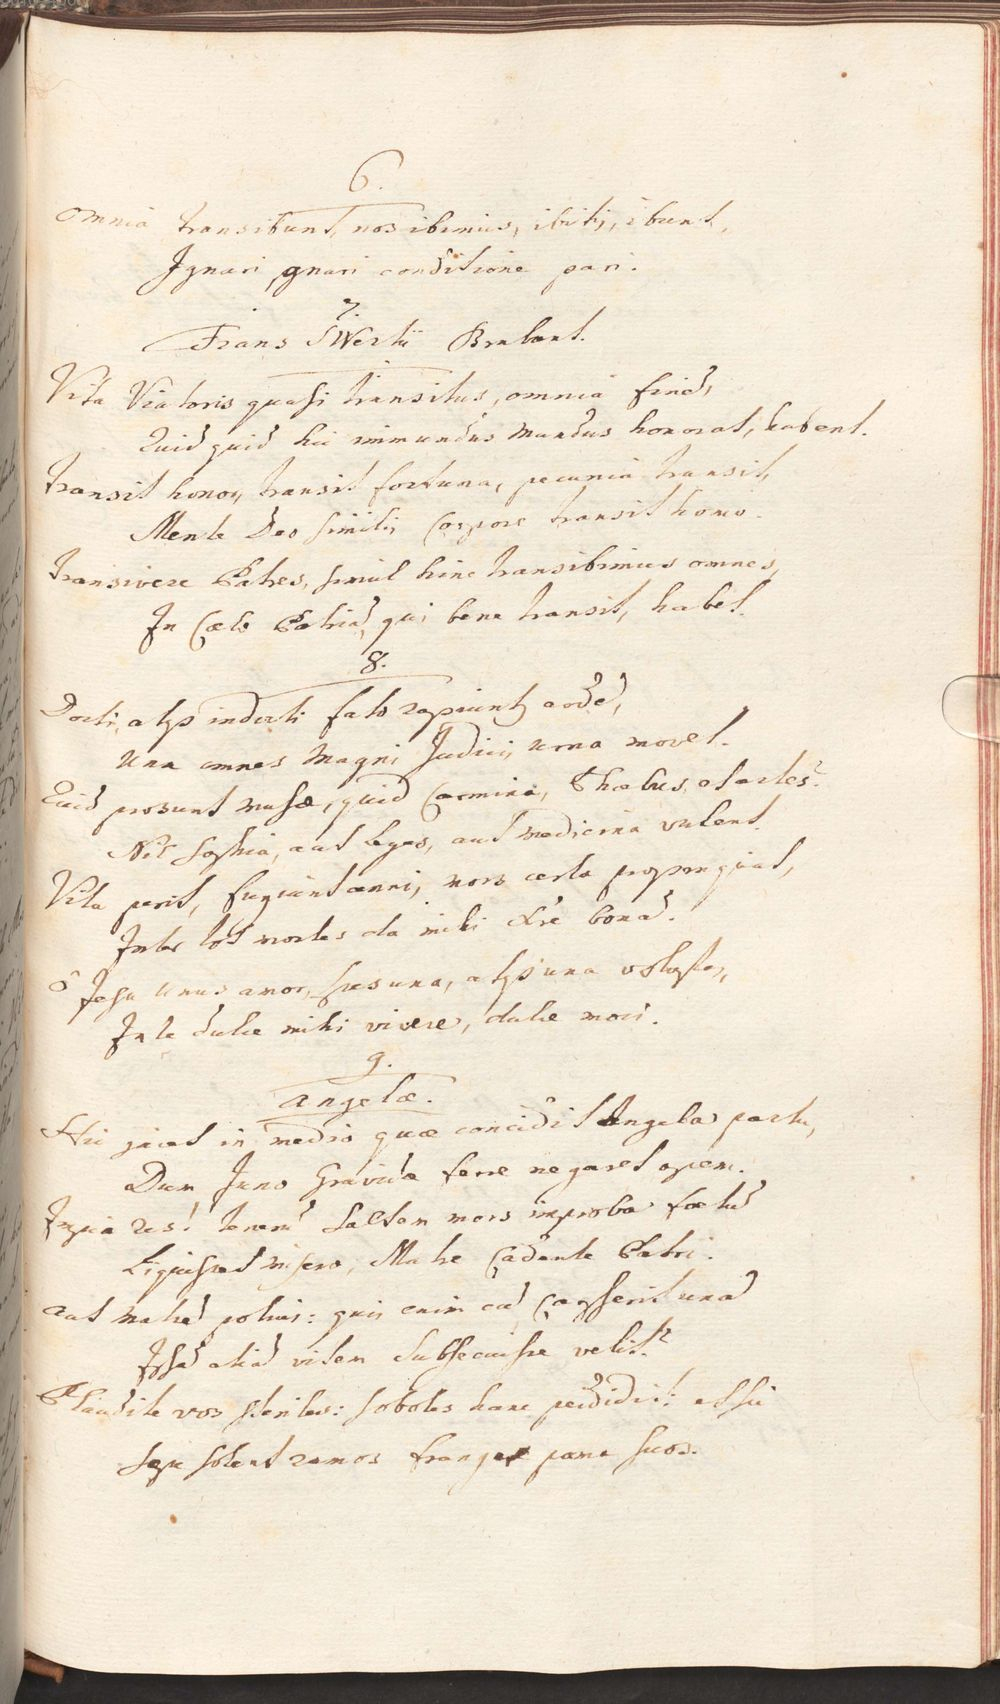 6.
Omnia transibunt, nos ibimus, ibitis, ibunt,
Ignari, gnari conditione pari.
7.
Frans Swertii Brabant.
Vita Viatoris quasi transitus, omnia finē,
Quidquid hic immundus Mundus honorat, habent.
transit honor, transit fortuna, pecunia transit,
Mente Deo similis Corpore transit homo.
transivere Patres, simul hinc transibimus omnes,
In Cœlo Patriā, qui bene transit, habet.
8.
Docti, atqȝ indocti fato rapiunt
Una omnes Magni Judicis urna movet.
Quid prosunt musæ, quid Carmina, Phœbus, et artes?
Nil Sophia, aut leges, aut medicina valent.
Vita perit, fugiunt anni, mors certa propinquat,
Inter tot mortes da mihi Xre bonā.
ô Jesu unus amor, spes una, atqȝ una voluptas,
In te dulce mihi vivere, dulce mori.
9.
Angelæ.
Hic jacet in medio quæ concidit Angela partu,
Dum Juno Gravidæ ferre negaret opem.
Impia res! tenerū Saltem mors improba fœtū
Liquisset misero, Matre Cadente Patri.
aut matrē potius: quis enim cū Carpserit unā
Ipsā aliā vitem subsecuisse velit?
Plaudite vos steriles: soboles hanc perdidit: et sic
Sæpe solent ramos frangere poma suos.